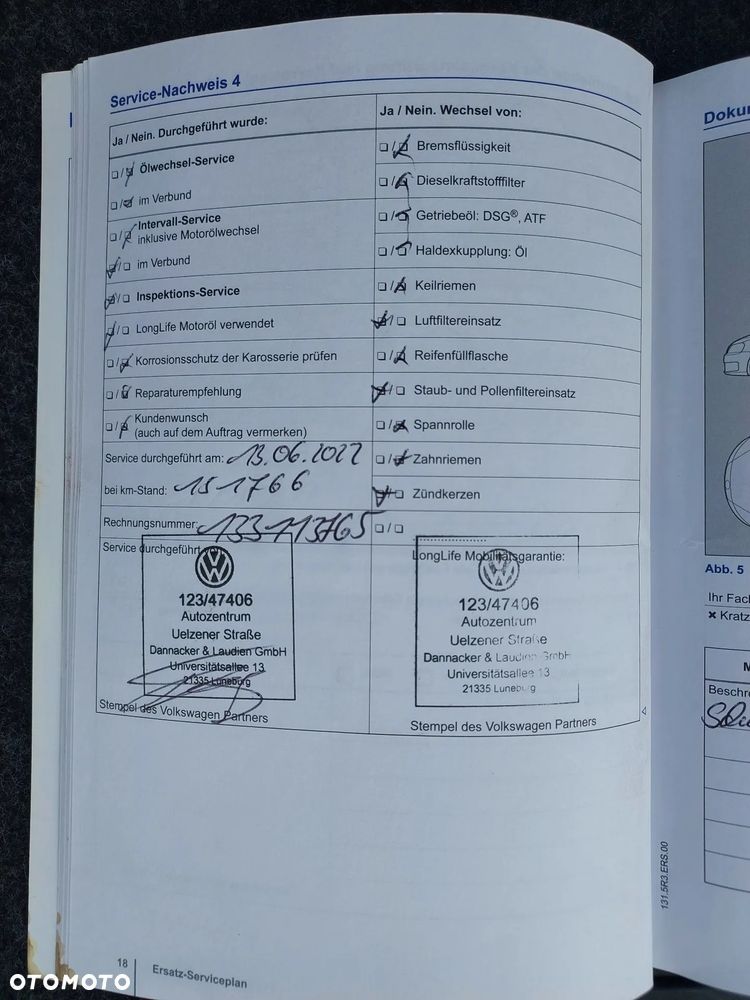 Service-Nachweis 4
Ja / Nein. Durchgeführt wurde:
❑ / ❑ Ölwechsel-Service
❑ / ❑ im Verbund
❑ / ❑ Intervall-Service
inklusive Motorölwechsel
❑ / ❑ im Verbund
❑ / ❑ Inspektions-Service
❑ / ❑ LongLife Motoröl verwendet
❑ / ❑ Korrosionsschutz der Karosserie prüfen
❑ / ❑ Reparaturempfehlung
❑ / ❑ Kundenwunsch
(auch auf dem Auftrag vermerken)
Service durchgeführt am: 13.06.2022
bei km-Stand: 151766
Rechnungsnummer: 133113765
Service durchgeführt von:
123/47406
Autozentrum
Uelzener Straße
Dannacker & Laudien GmbH
Universitätsallee 13
21335 Lüneburg
Stempel des Volkswagen Partners
Ja / Nein. Wechsel von:
❑ / ❑ Bremsflüssigkeit
❑ / ❑ Dieselkraftstofffilter
❑ / ❑ Getriebeöl: DSG®, ATF
❑ / ❑ Haldexkupplung: Öl
❑ / ❑ Keilriemen
❑ / ❑ Luftfiltereinsatz
❑ / ❑ Reifenfüllflasche
❑ / ❑ Staub- und Pollenfiltereinsatz
❑ / ❑ Spannrolle
❑ / ❑ Zahnriemen
❑ / ❑ Zündkerzen
❑ / ❑ ....................
LongLife Mobilitätsgarantie:
123/47406
Autozentrum
Uelzener Straße
Dannacker & Laudien GmbH
Universitätsallee 13
21335 Lüneburg
Stempel des Volkswagen Partners
18
Ersatz-Serviceplan
131.5R3.ERS.00
Dokum
Abb. 5
Ihr Fach
✖ Kratz
M
Beschre
OTOMOTO